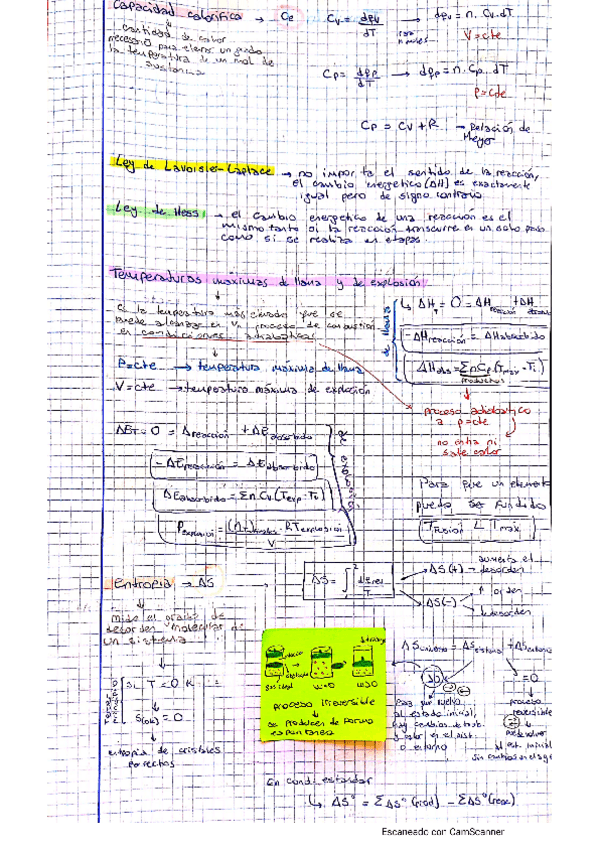 Capacidad calorífica → Ce
cantidad de calor
necesario para elevar un grado
la temperatura de un mol de
sustancia
Cv = dqv/dT → dqv = n. Cv. dT
V = cte
Cp = dqp/dT → dqp = n. Cp. dT
p = cte
Cp = Cv + R → Relación de
Meyer
Ley de Lavoisier-Laplace → no importa el sentido de la reacción,
el cambio energético (ΔH) es exactamente
igual pero de signo contrario
Ley de Hess → el cambio energético de una reacción es el
mismo tanto si la reacción transcurre en un solo paso
como si se realiza en etapas.
Temperaturas máximas de llama y de explosión
Es la temperatura más elevada que se
puede alcanzar en un proceso de combustión
en condiciones adiabáticas
P = cte → temperatura máxima de llama
V = cte → temperatura máxima de explosión
de llama
ΔH_T = 0 = ΔH reacción + ΔH
-ΔH reacción = ΔH absorbido
ΔH abs = Σ n Cp (Tmax - Ti)
productos
proceso adiabático
a p = cte
no entra ni
sale calor
de explosión
ΔE_T = 0 = Δ reacción + ΔE absorbido
-ΔE reacción = ΔE absorbido
ΔE absorbido = Σ n Cv (Texp - Ti)
P explosión = (n) totales · R T explosión / V
Para que un elemento
pueda ser fundido
T fusión < T max
Entropía → ΔS
mide el grado de
desorden molecular de
un sistema
ΔS = ∫ 1 2 dq rev / T
ΔS (+) → aumenta el
desorden
ΔS (-) → ↑ orden
↓ desorden
Tercer principio
Si T = 0 K
S(0K) = 0
entropía de cristales
perfectos
Gas ideal
W = 0
W > 0
proceso irreversible
se producen de forma
espontánea
ΔS universo = ΔS sistema + ΔS entorno
> 0
= 0
proceso
reversible
puede volver
al est. inicial
sin cambios en el
al estado inicial,
hay cambios de trab.
y calor en el sist.
o entorno
En condi. estándar
↳ ΔS° = Σ ΔS° (prod) - Σ ΔS° (reac)
Escaneado con CamScanner